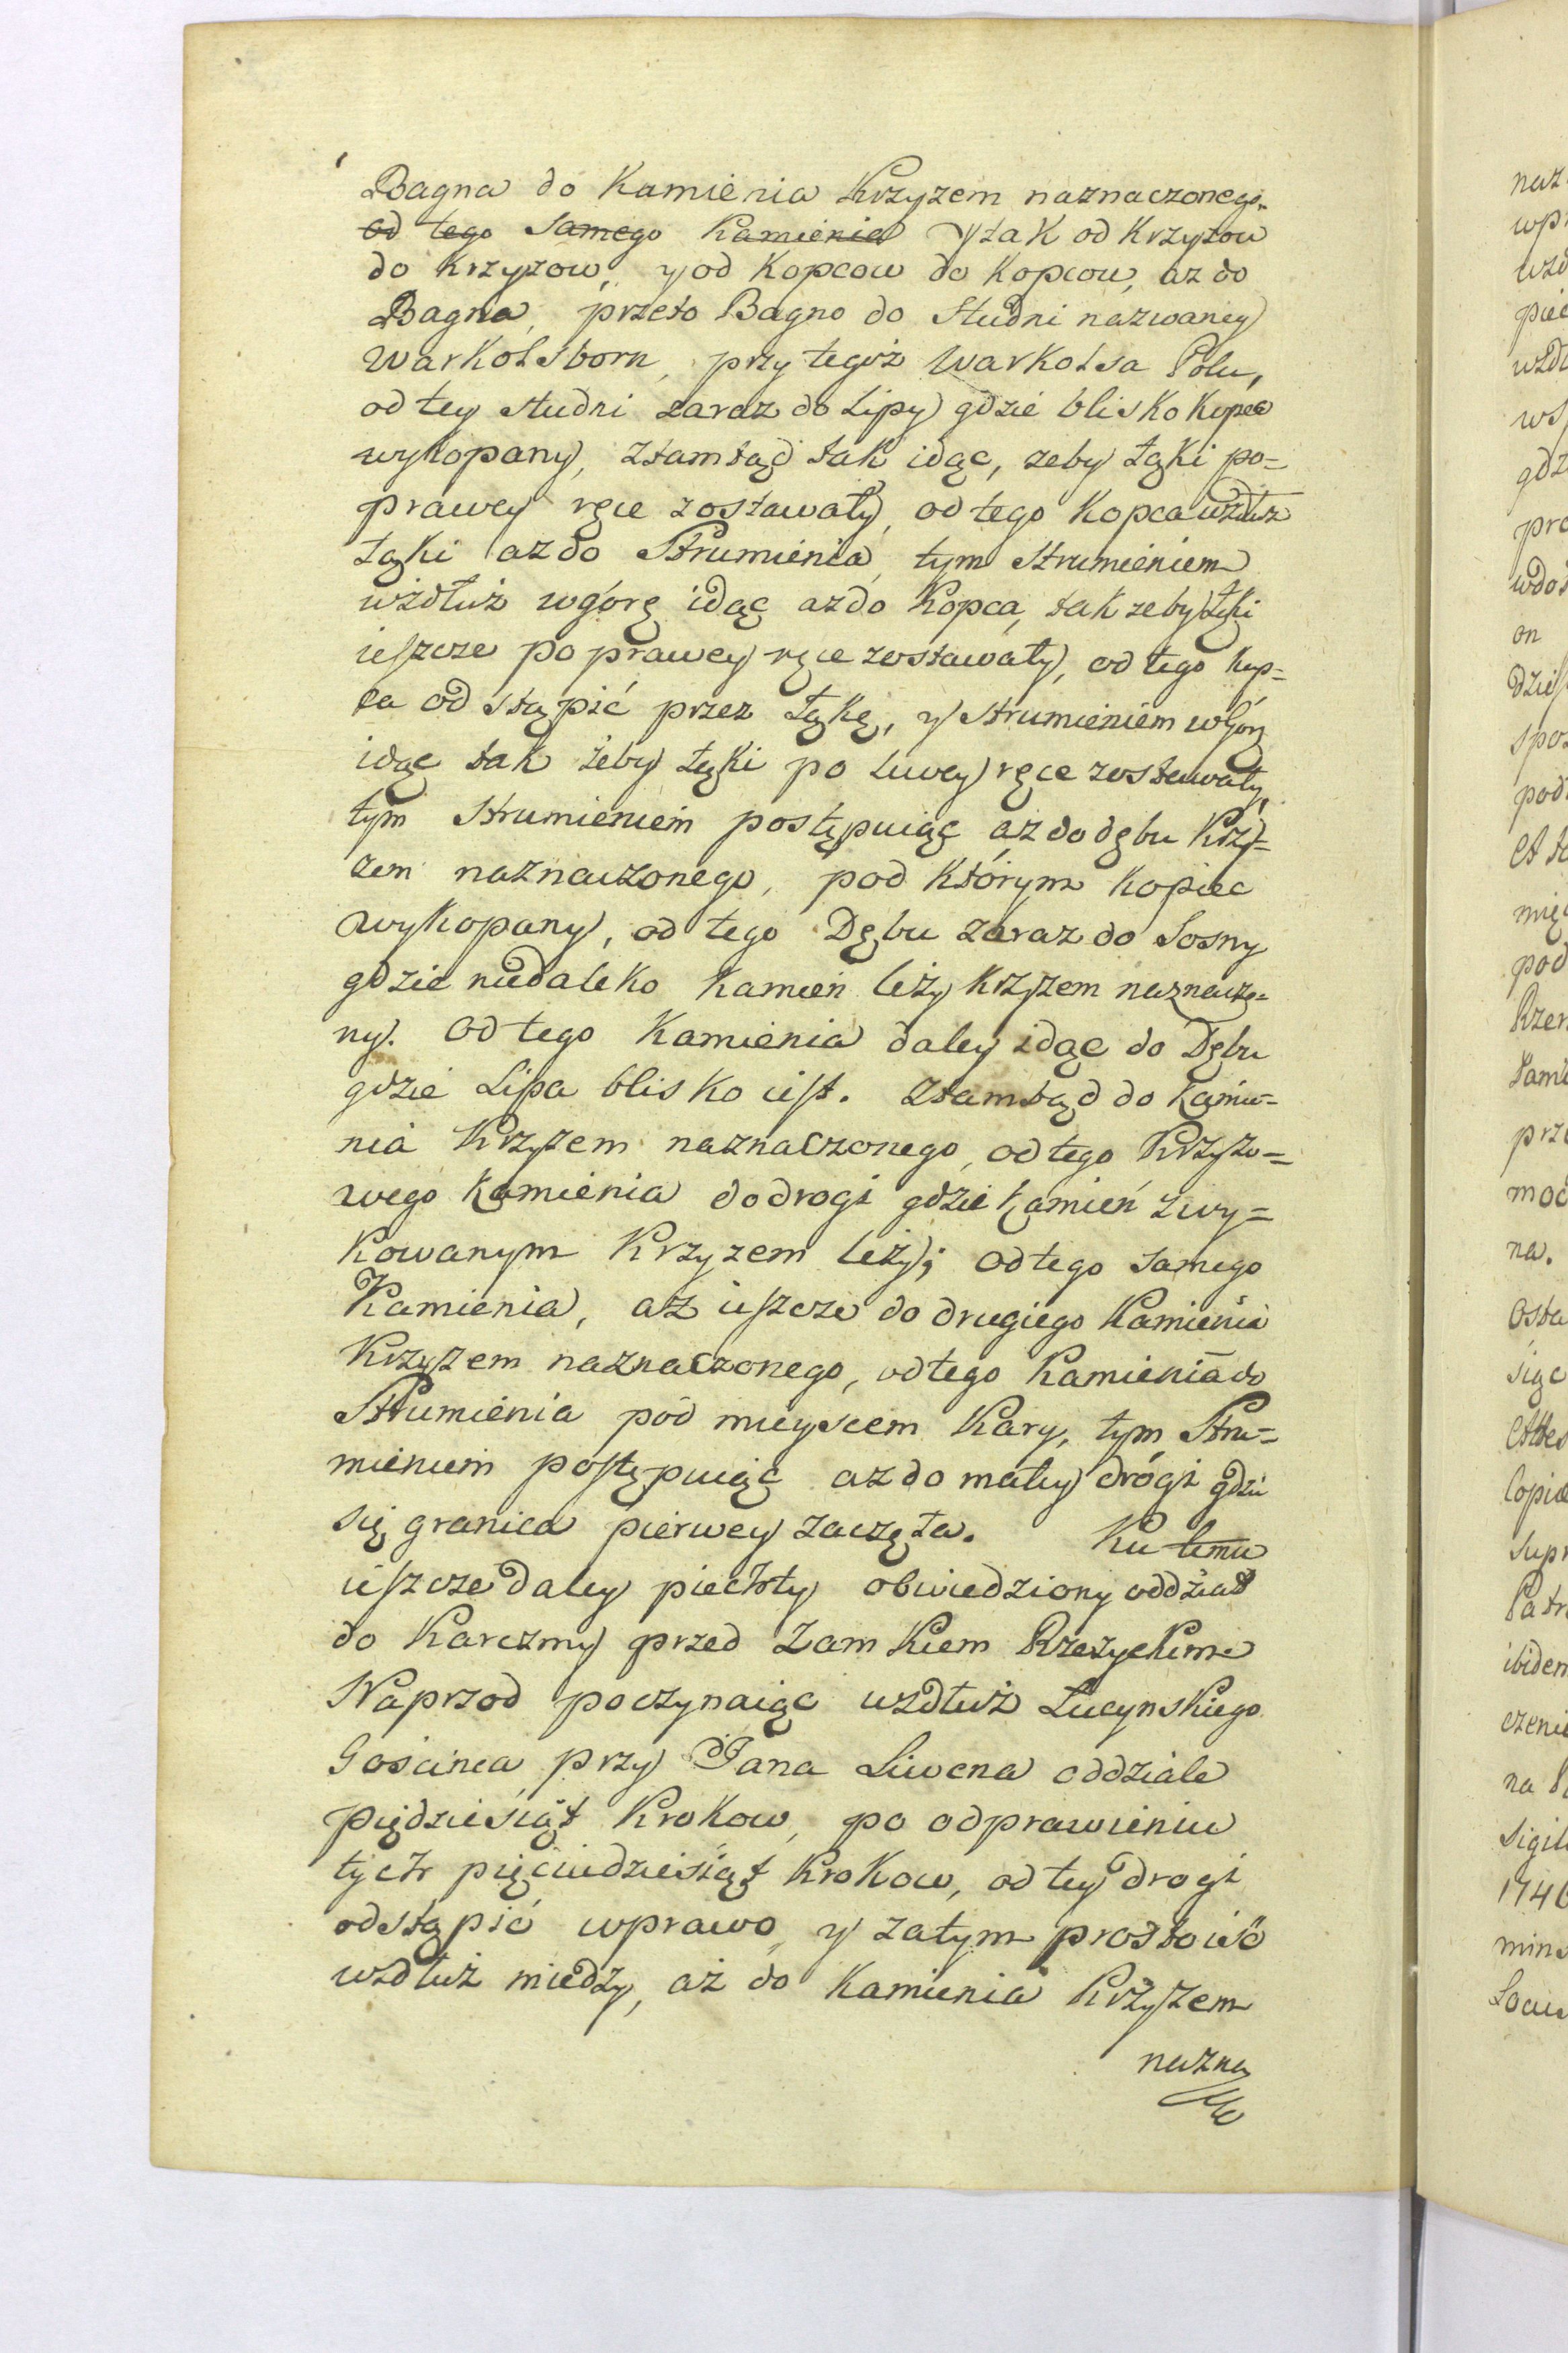 Bagna do Kamienia Krzyzem naznaczonego.
od tego samego Kamienia y tak od Krzyżow
do Krzyzow, y od Kopcow do Kopcow, az do
Bagna, przeto Bagno do Studni nazwaney
Warkolsborn, przy tegoż Warkolsa Polu,
od tey studni zaraz do Lipy gdzie blisko kopec
wykopany, ztamtąd tak idąc, zeby łąki po=
prawey ręce zostawały, od tego Kopca wżdłuż
łąki aż do Strumienia, tym Strumieniem
wżdłuż wgórę idąc aż do Kopca, tak zeby łąki
ieszcze po prawey ręce zostawały, od tego kop=
ca odstąpić przez łąkę, y strumieniem wgórę
idąc tak żeby łąki po lewey ręce zostawały,
tym Strumieniem postępuiąc aż do dębu Krzy=
zem naznaczonego, pod którym kopiec
wykopany, od tego Dębu zaraz do Sosny
gdzie niedaleko kamień leży krzyżem naznaczo=
ny. Od tego Kamienia daley idąc do Dębu
gdzie Lipa blisko iest. Ztamtąd do kamie=
nia Krzyżem naznaczonego, od tego Krzyżo=
wego kamienia do drogi gdzie kamień z wy=
kowanym Krzyzem leży; od tego samego
Kamienia, aż ieszcze do drugiego Kamienia
Krzyżem naznaczonego, od tego Kamienia do
Strumienia pod mieyscem Kary, tym Stru=
mieniem postępuiąc aż do małey drógi gdzie
się granica pierwey zaczęła. Ku temu
ieszcze daley piechoty obwiedziony oddział
do Karczmy przed Zamkiem Rzeżyckim
Naprzod poczynaiąc wzdłuż Lucynskiego
Gościnca przy Jana Liwena oddziale
piędziesiąt Krokow, po odprawieniu
tych pięciudziesiąt Krokow, od tey drogi
odstąpić wprawo, y zatym prosto iść
wzdłuż miedzy, aż do Kamienia Krzyżem
nazna